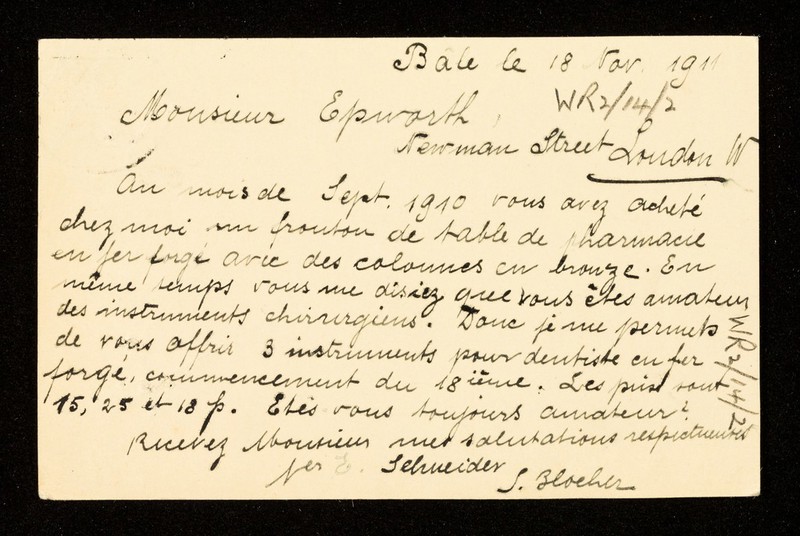 Bale le 18 Nov. 1911
WR2/14/2
Monsieur Epworth,
Newman Street London W
Au mois de Sept. 1910 vous avez acheté
chez moi un fronton de table de pharmacie
en fer forgé avec des colonnes en bronze. En
même temps vous me disiez que vous êtes amateur
des instruments chirurgiens. Donc je me permets
de vous offrir 3 instruments pour dentiste en fer
forgé, commencement du 18ième. Les prix sont
15, 25 et 18 f. Etes vous toujours amateur?
Recevez Monsieur mes salutations respectueuses
per E. Schneider
S. Blocher
WR2/14/2